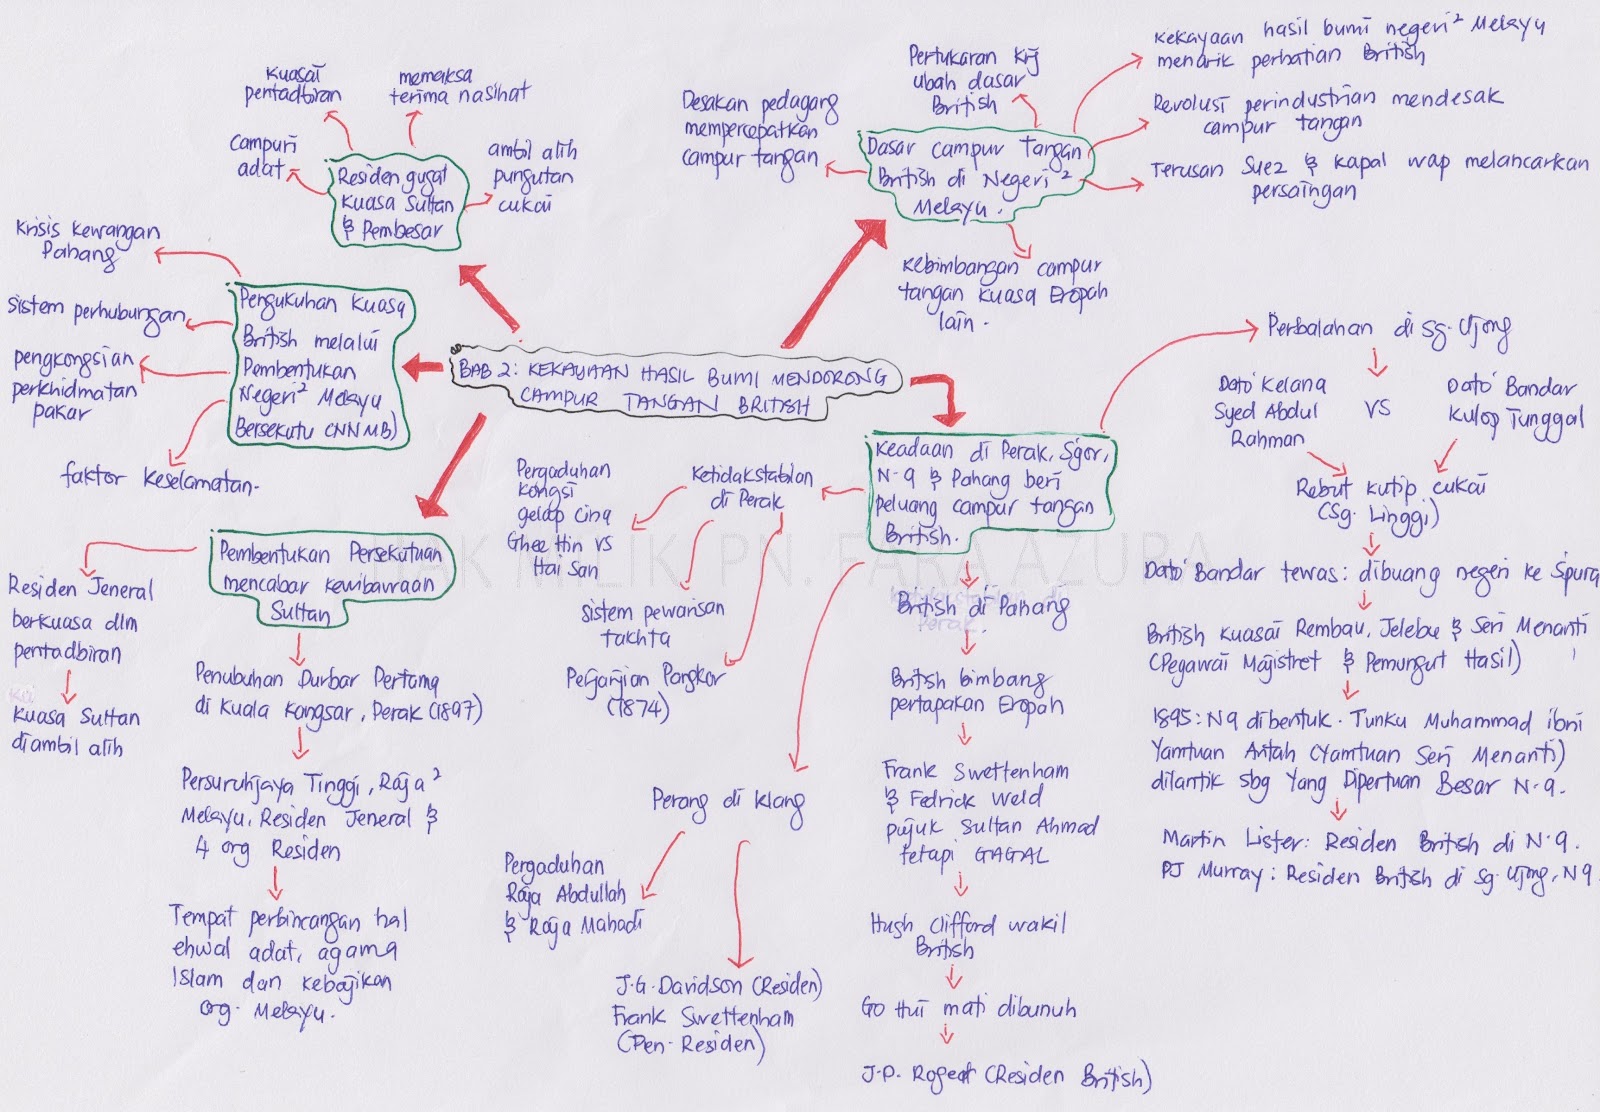 BAB 2: KEKAYAAN HASIL BUMI MENDORONG
CAMPUR TANGAN BRITISH
Dasar campur tangan
British di Negeri²
Melayu.
Desakan pedagang
mempercepatkan
campur tangan
Pertukaran Krj
ubah dasar
British
Kekayaan hasil bumi negeri² Melayu
menarik perhatian British
Revolusi perindustrian mendesak
campur tangan
Terusan Suez & kapal wap melancarkan
persaingan
Kebimbangan campur
tangan kuasa Eropah
lain.
Keadaan di Perak, S'gor,
N.9 & Pahang beri
peluang campur tangan
British.
Perbalahan di Sg. Ujong
Dato' Kelana
Syed Abdul
Rahman
VS
Dato' Bandar
Kulop Tunggal
Rebut kutip cukai
(Sg. Linggi)
Dato' Bandar tewas: dibuang negeri ke S'pura
British kuasai Rembau, Jelebu & Seri Menanti
(Pegawai Majistret & Pemungut Hasil)
1895: N9 dibentuk. Tunku Muhammad ibni
Yamtuan Antah (Yamtuan Seri Menanti)
dilantik sbg Yang Dipertuan Besar N.9.
Martin Lister: Residen British di N.9.
PJ Murray: Residen British di Sg. Ujong, N9.
British di Pahang
British bimbang
pertapakan Eropah
Frank Swettenham
& Fedrick Weld
pujuk Sultan Ahmad
tetapi GAGAL
Hugh Clifford wakil
British
Go Hui mati dibunuh
J.P. Rogert (Residen British)
Ketidakstabilan
di Perak
Pergaduhan
kongsi
gelap cina
Ghee Hin vs
Hai San
sistem pewarisan
takhta
Perjanjian Pangkor
(1874)
Perang di Klang
Pergaduhan
Raja Abdullah
& Raja Mahadi
J.G. Davidson (Residen)
Frank Swettenham
(Pen. Residen)
Pembentukan Persekutuan
mencabar kewibawaan
Sultan
Residen Jeneral
berkuasa dlm
pentadbiran
kuasa Sultan
diambil alih
Penubuhan Durbar Pertama
di Kuala Kangsar, Perak (1897)
Persuruhjaya Tinggi, Raja²
Melayu, Residen Jeneral &
4 org Residen
Tempat perbincangan hal
ehwal adat, agama
Islam dan kebajikan
org. Melayu.
Pengukuhan kuasa
British melalui
Pembentukan
Negeri² Melayu
Bersekutu (NNMB)
Krisis Kewangan
Pahang
sistem perhubungan
pengkongsian
perkhidmatan
pakar
faktor keselamatan.
Residen gugat
kuasa Sultan
& Pembesar
campuri
adat
kuasai
pentadbiran
memaksa
terima nasihat
ambil alih
pungutan
cukai
HAK MILIK PN. FARA AZURA